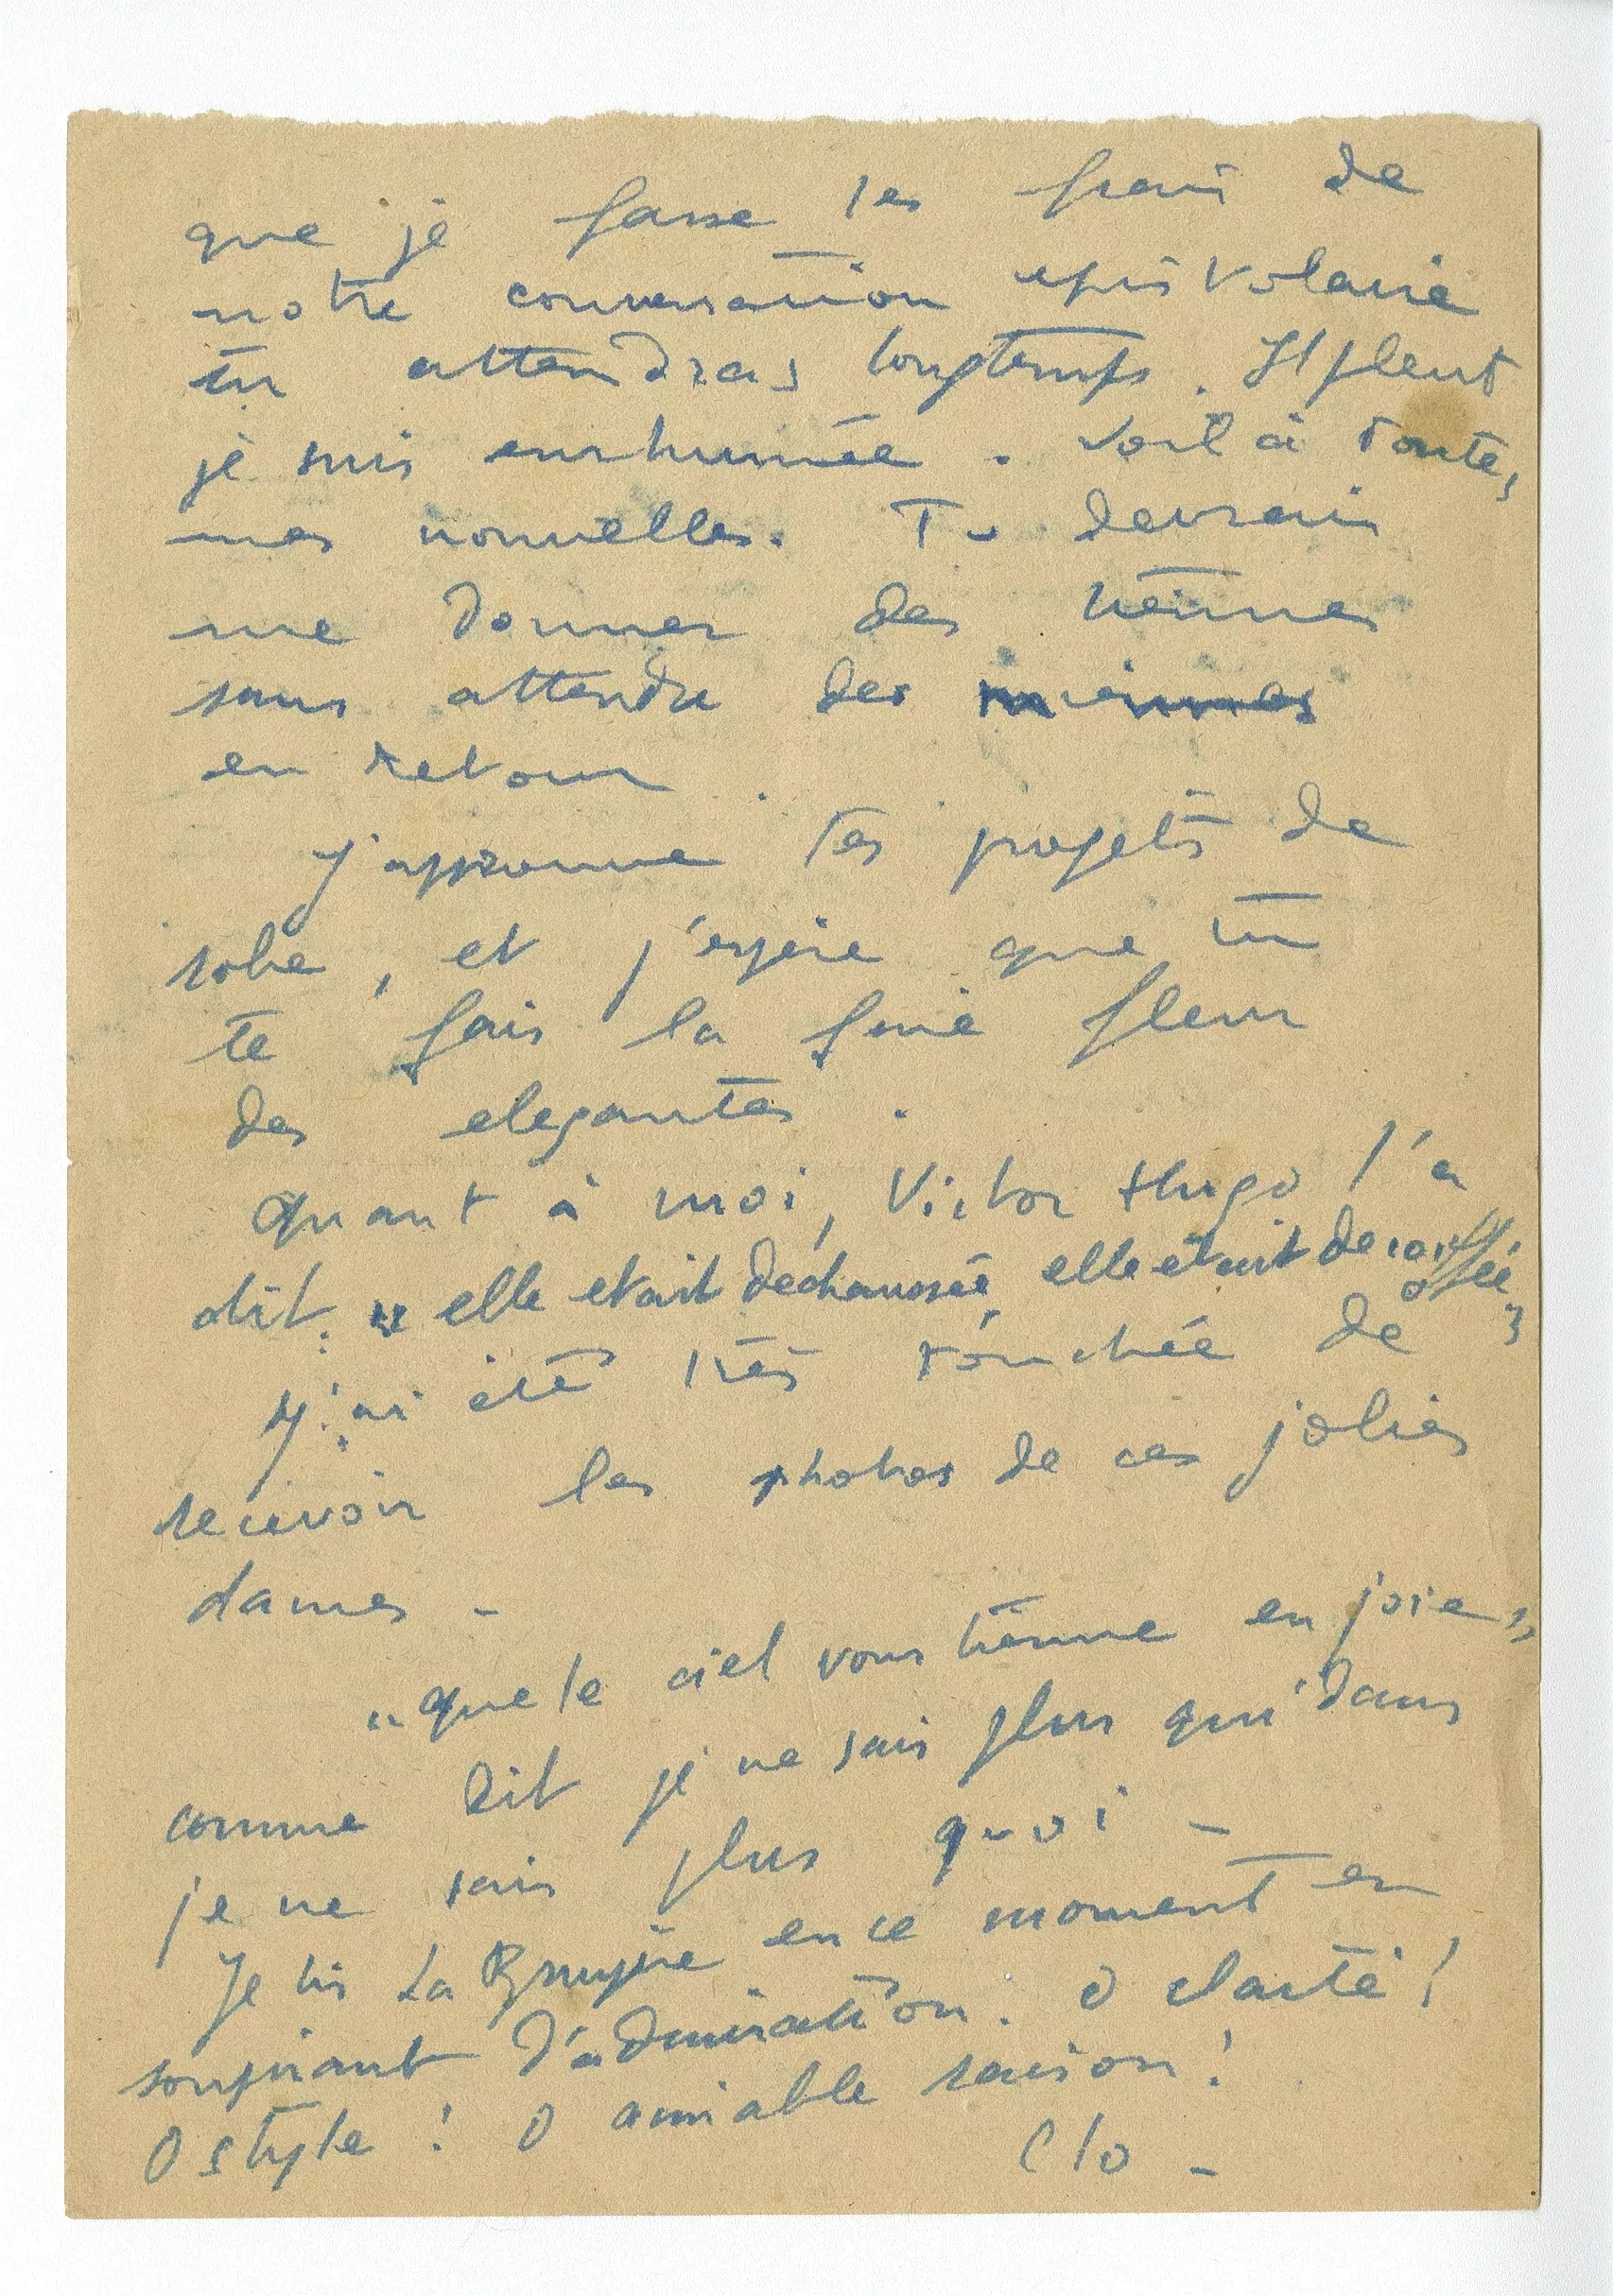 que je fasse les frais de
notre conversation epistolaire
tu attendras longtemps. Il pleut
je suis enrhumée. Voilà toutes
mes nouvelles. Tu devrais
me donner des tiennes
sans attendre des miennes
en retour.
J'approuve tes projets de
robe, et j'espère que tu
te fais la fine fleur
des elegantes.
Quant à moi, Victor Hugo l'a
dit : "elle etait dechaussée, elle était decoiffée"
J'ai été très touchée de
recevoir les photos de ces jolies
dames -
"que le ciel vous tienne en joie"
comme dit je ne sais plus qui dans
je ne sais plus quoi -
Je lis La Bruyère en ce moment en
soupirant d'admiration. O clarté !
O style ! O aimable raison !
Clo -